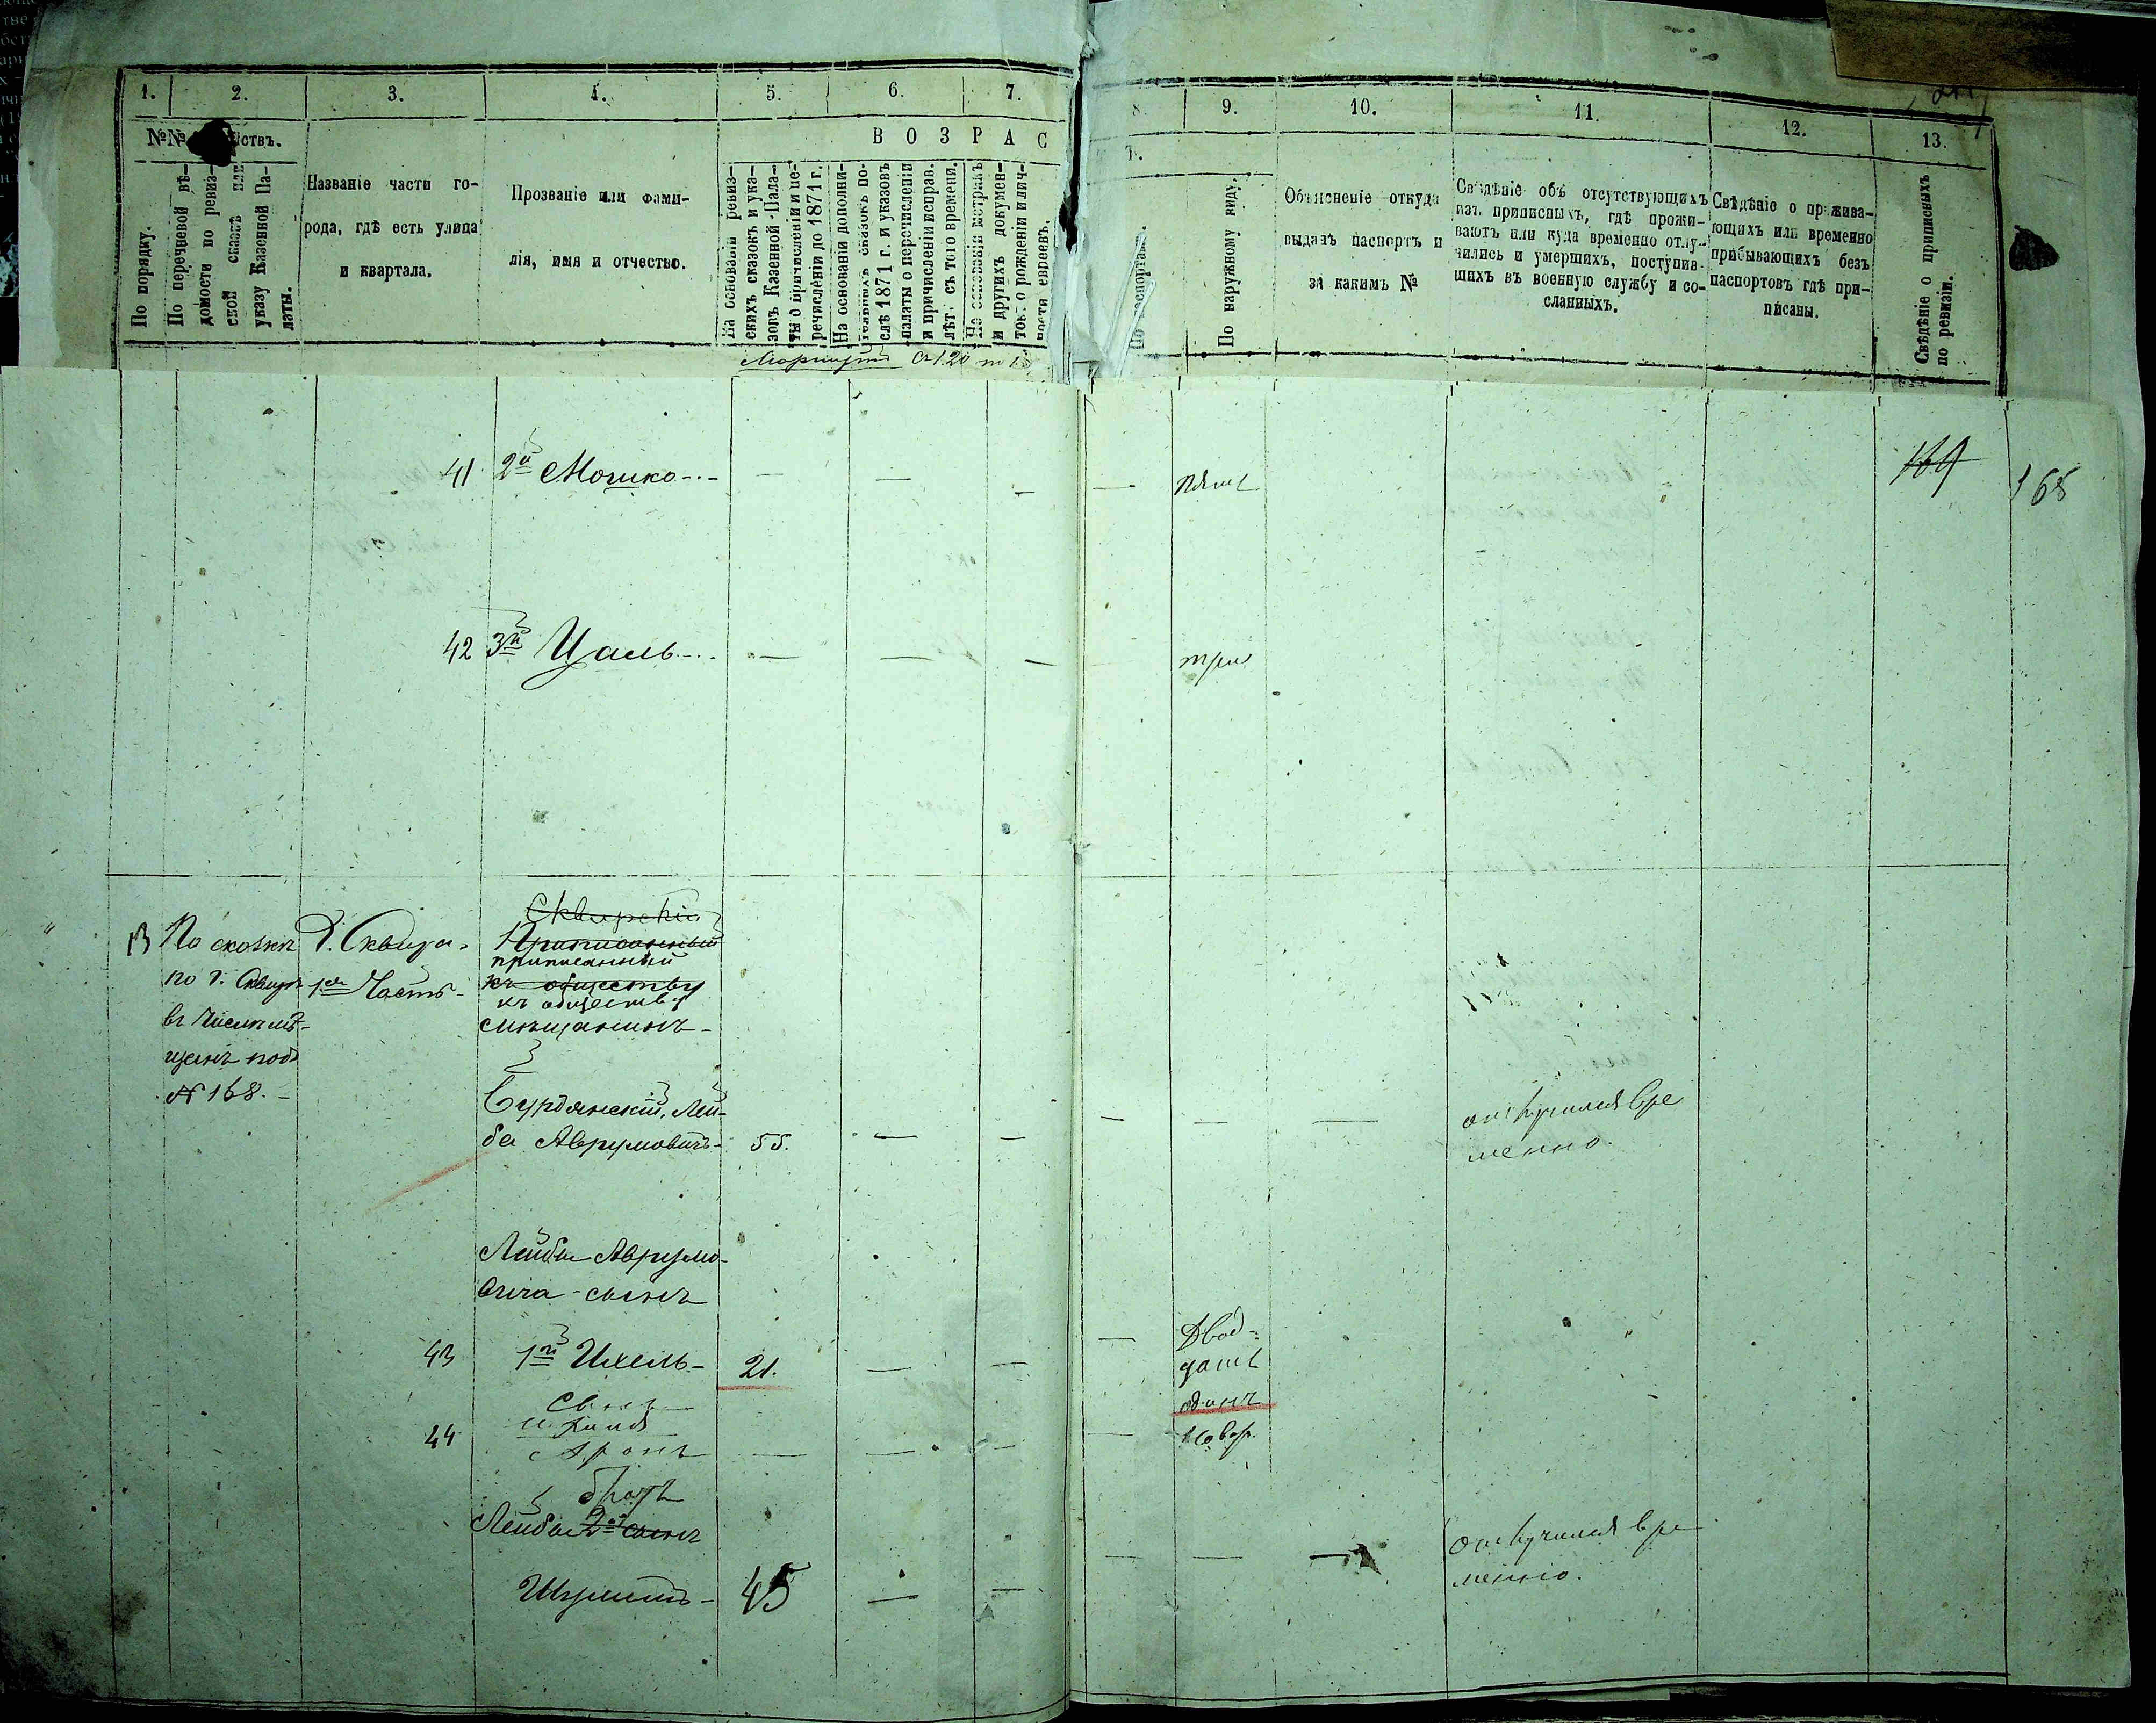 1. 2. 3. 4. 5. 6. 7. 8. 9. 10. 11. 12. 13.
№№ йствъ.
В О З Р А С Т.
По порядку.
По перечневой вѣ-
домости по ревиз-
ской сказкѣ или
указу Казенной Па-
латы.
Названіе части го-
рода, гдѣ есть улица
и квартала.
Прозваніе или фами-
лія, имя и отчество.
На основаніи ревиз-
скихъ сказокъ и ука-
зовъ Казенной Пала-
ты о причисленіи и пе-
речисленіи до 1871 г.
На основаніи дополни-
тельныхъ сказокъ по-
слѣ 1871 г. и указовъ
палаты о перечисленіи
и причисленіи исправ.
лѣт. съ того времени.
На основаніи метрикъ
и другихъ докумен-
ток. о рожденіи и лич-
ности евреевъ.
По наружному виду.
Объясненіе откуда
выданъ паспортъ и
за какимъ №
Свѣдѣніе объ отсутствующихъ
изъ приписныхъ, гдѣ прожи-
ваютъ или куда временно отлу-
чились и умершихъ, поступив-
шихъ въ военную службу и со-
сланныхъ.
Свѣдѣніе о прожива-
ющихъ или временно
прибывающихъ безъ
паспортовъ гдѣ при-
писаны.
Свѣдѣніе о приписныхъ
по ревизіи.
41 2й Мошко - - - - пять 169 168
42 3й Цаль - - - - три
Сквирскій
13 По сказкѣ Г. Сквира. Приписанный
приписанный
по г. Сквирѣ 1ая Часть къ обществу
къ обществу
въ числѣ мѣ- мѣщанинъ
щанъ подъ
№ 168.
Бурдянскій, Лей-
ба Аврумовичъ - 55. - - - - отлучился вре
менно.
Лейбы Аврумо-
вича - сынъ
43 1й Ихель - 21. - - - Двад-
цать
одинъ
Сынъ
44 Аронъ - - - - 
братъ
Лейбы 2й сынъ
Шулимъ - 45 - - - - - отлучился вре
менно.